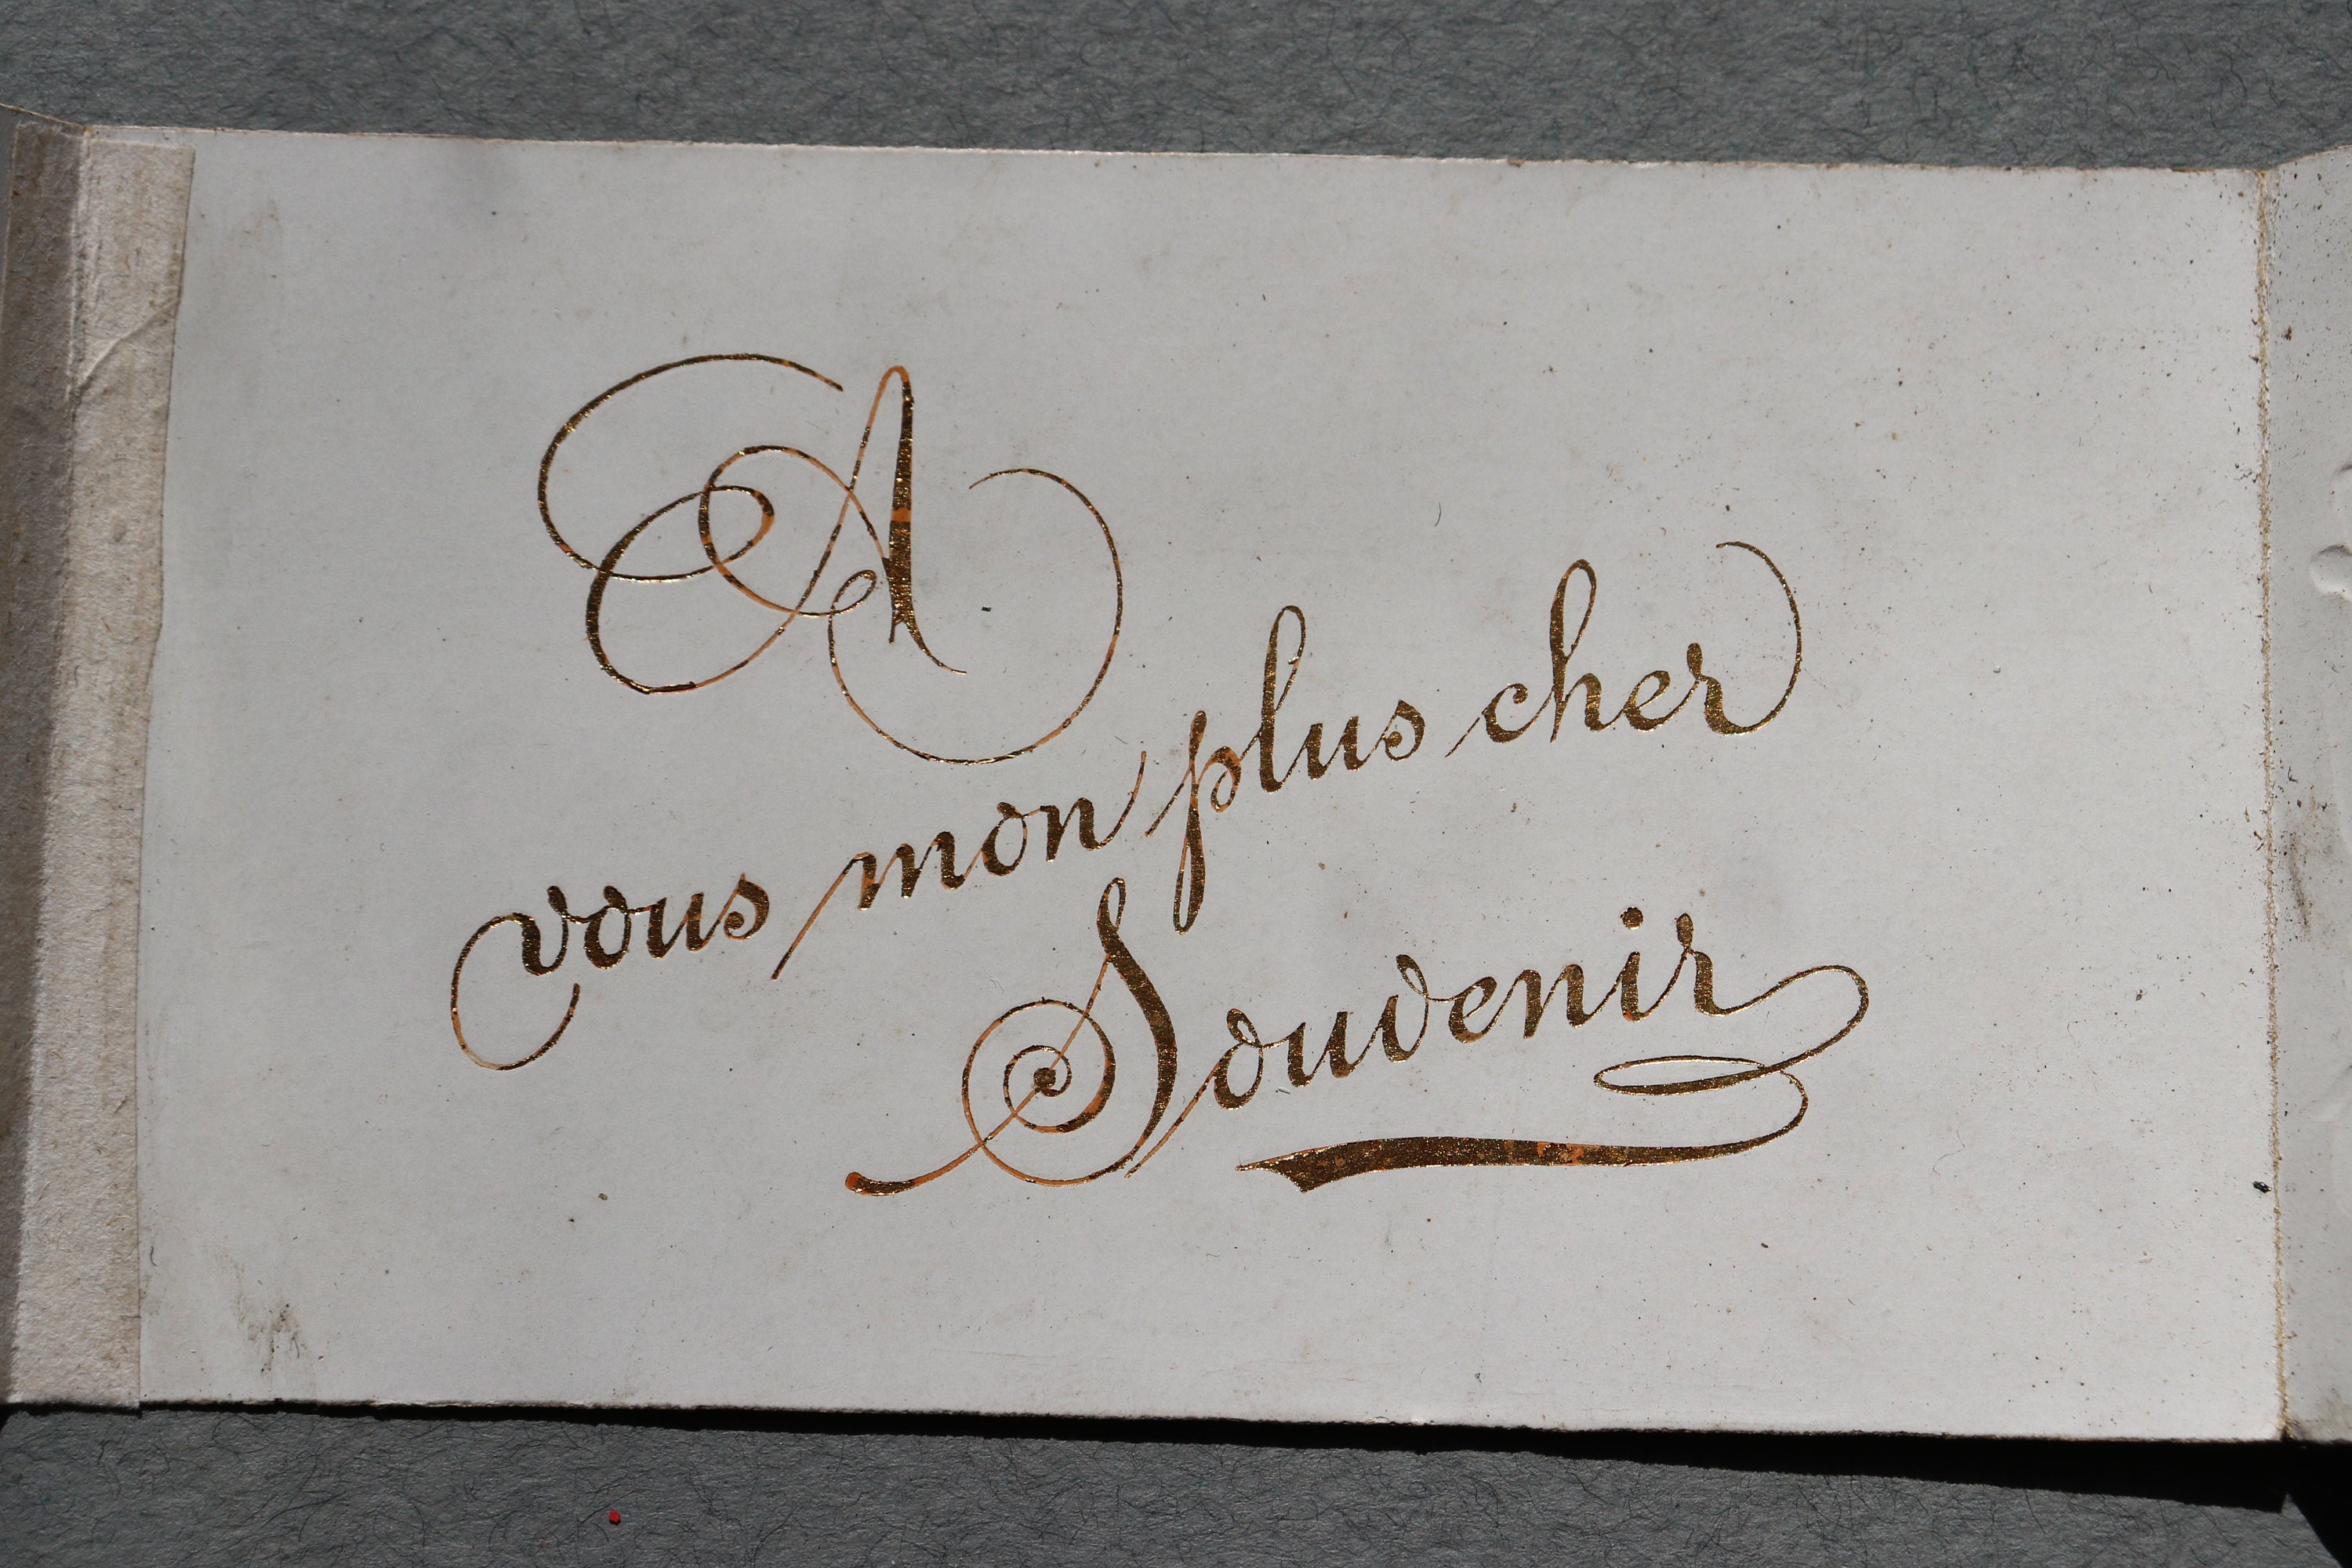 A
vous mon plus cher
Souvenir